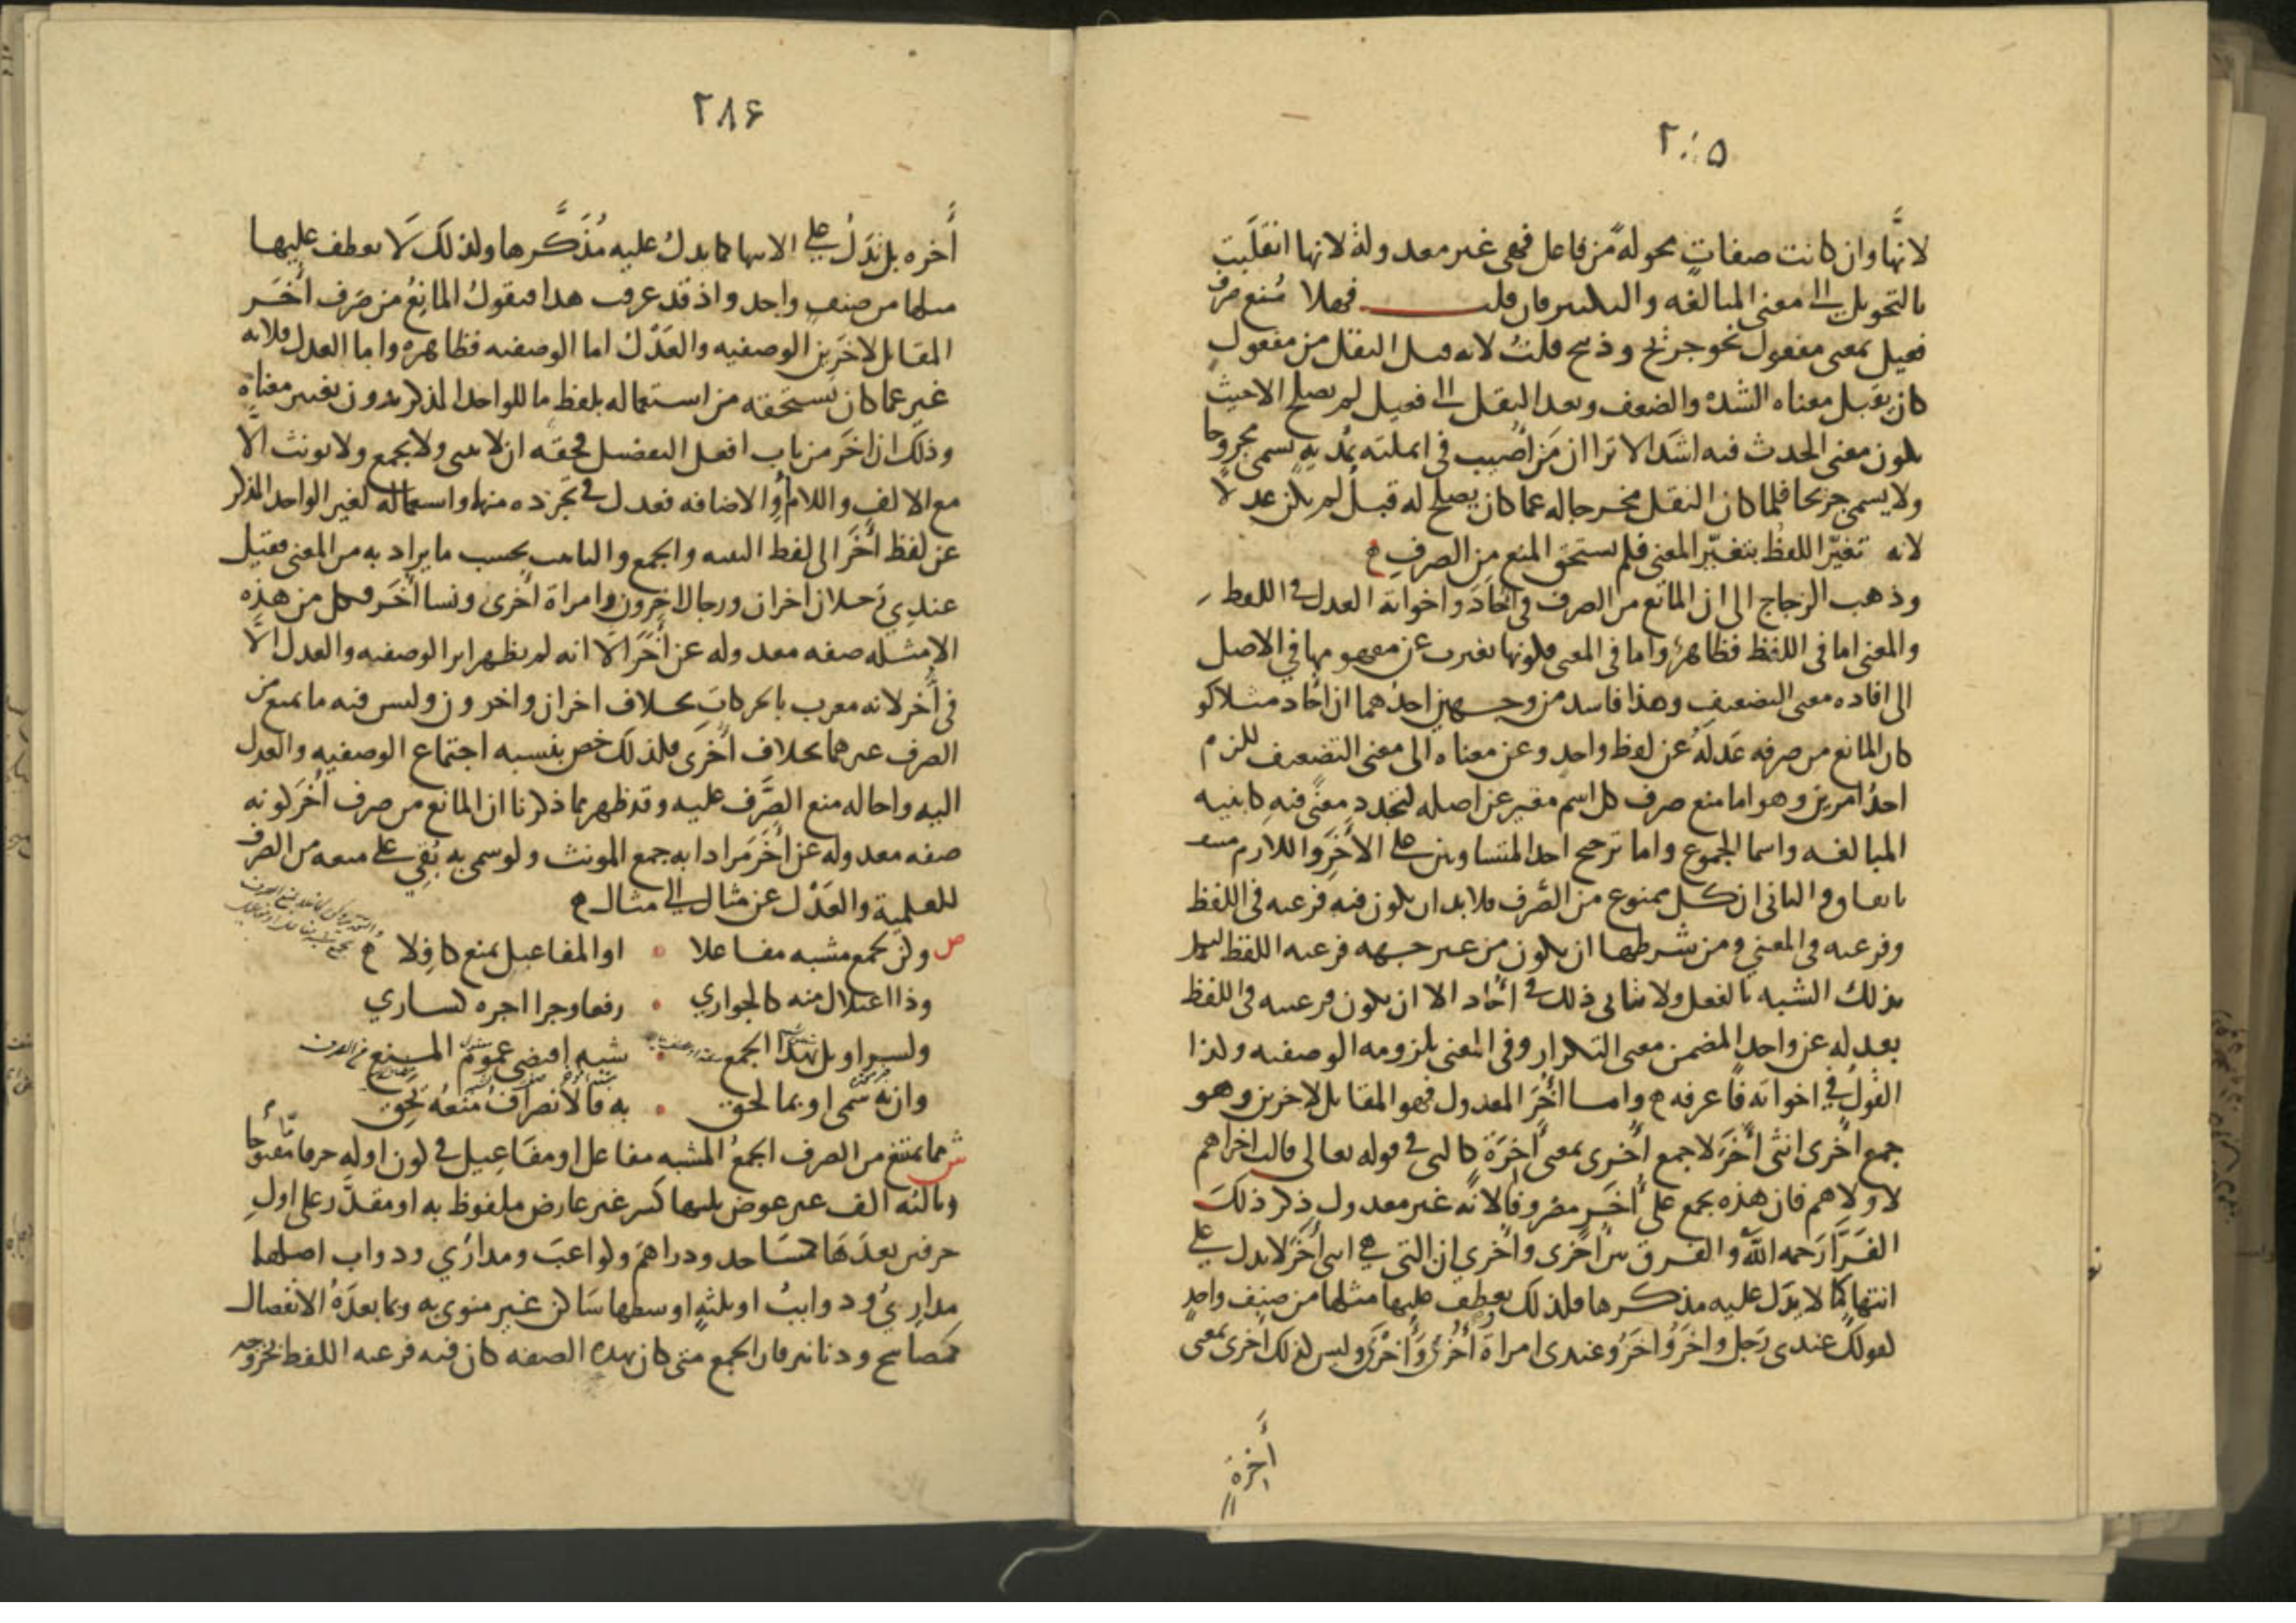 ٢٨٥
لانها وان كانت صفاتٍ محولة من فاعل فهى غير معدولة لانها انقلبت
بالتحويل الى معنى المبالغه والتكثير فان قلت فهلا مُنع صرف
فعيل بمعنى مفعول نحو جريح وذبيح قلتُ لانه قبل النقل من مفعول
كان يقبل معناه الشدة والضعف وبعد النقل الى فعيل لم يصلح الا حيث
يكون معنى الحدث فيه اشد الا ترا ان مَن اُصيب فى انملته بمُديةٍ يسمى مجروحا
ولا يسمى جريحا فلما كان النقل مخرجا له عما كان يصلح له قبل لم يكن عدلا
لانه تغيّر اللفظ بتغيّر المعنى فلم يستحق المنع من الصرف
وذهب الزجاج الى ان المانع من الصرف فى اُحَادَ واخواته العدل فى اللفظ
والمعنى اما فى اللفظ فظاهرٌ واما فى المعنى فلكونها تغيرت عن مفهومها فى الاصل
الى افاده معنى التضعيف وهذا فاسد من وجهين احدُهما ان اُحاد مثلا لو
كان المانع من صرفه عَدلَهُ عن لفظ واحدٍ وعن معناه الى معنى التضعيف للزم
احدُ امرين وهو اما منع صرف كل اسم مغير عن اصله لتجدد معنًى فيه كابنيه
المبالغه واسما الجموع واما ترجيح احد المتساويين على الآخَرِ واللازم منتف
باتفاق والثانى ان كل ممنوع من الصَّرف فلا بد ان يكون فيه فرعيه فى اللفظ
وفرعيه فى المعنى ومن شرطها ان يكون من غير جهه فرعيه اللفظ ليكمل
بذلك الشبه بالفعل ولا يتاتى ذلك فى اُحَاد الا ان يكون فرعيته فى اللفظ
بعدله عن واحد المضمن معنى التكرار وفى المعنى بلزومه الوصفيه ولذا
القول فى اخواته فاعرفه واما اُخَرُ المعدول فهو المقابل لآخرين وهو
جمع اُخرى انثى آخَرَ لا جمع اُخرى بمعنى آخِرَة كالتى فى قوله تعالى قالت اخراهم
لاولاهم فان هذه يجمع على اُخَرٍ مصروفا لانه غير معدول ذكر ذلك
الفَرَّا رَحمه اللهُ والفرق بين اُخرى واُخرى ان التى هى انثى آخَرَ لا تدل على
انتها كما لا يدَل عليه مذكرها فلذلك يعطف عليها مثلها من صنِف واحدٍ
كقولك عندى رَجل وآخَرُ وآخَرُ وعندى امراة اُخرَى واُخرَى وليس كذلك اخرى بمعنى
آخِرة
٢٨۶
آخره بل تَدلُ على الانتها كما يدلُ عليه مُذَكَّرها ولذلك لا يعطف عليها
مثلها من صنفٍ واحد واذ قد عرفت هذا فنقولُ المانِعُ من صَرف اُخَر
المقابل لآخَرِين الوصفيه والعَدْلُ اما الوصفيه فظاهره واما العدل فلانه
غير عما كان يستحقه من استعماله بلفظ ما للواحد المذكر بدون تغيير معناه
وذلك ان آخَر من باب افعل التفضيل فحقه ان لا يثنى ولا يجمع ولا يونث الّا
مع الالف واللام أو الاضافه فعدل فى تجرده منها واستعماله لغير الواحد المذكر
عن لفظ آخَر الى لفظ التثنيه والجمع والتانيث بحسب ما يراد به من المعنى فقيل
عندِي رَجلان آخران ورجال آخرون وامراة اُخرى ونسا اُخَر فكل من هذِه
الامثله صفه معدوله عن آخَر الّا انه لم يظهر اثر الوصفيه والعدل الّا
فى اُخَر لانه معرب بالحركات بخلاف آخران وآخرون وليس فيه ما يمنع من
الصرف غيرهما بخلاف اُخرى فلذلك خص بنسبه اجتماع الوصفيه والعدل
اليه واحاله منع الصَّرف عليه وقد ظهر بما ذكرنا ان المانع من صرف اُخَر كونه
صفه معدوله عن آخَر مرادا به جمع المونث ولو سمى به بُقى على منعه من الصرف
للعلمية والعَدْل عن مثال الى مثال
ص وكن لجمع مشبه مفاعلا اوالمفاعيل بمنع كافِلا
وذا اعتلال منه كالجوارى رفعا وجرا اجره كسارى
ولسراويل بهذا الجمع شبه اقتضى عموم المنع
وان به سمى او بما لحق به فالانصرافُ منعُه يَحِق
ش مما يمتنع من الصرف الجمعُ المشبه مفاعل او مفاعِيل فى كون اوله حرفا مفتوحا
وثالثه الف غير عوض يليها كسر غير عارض ملفوظ به او مقدَّر على اولِ
حرفين بعدَها كمسَاجد ودراهمَ وكواعبَ ومدارَي ودواب اصلهما
مدارِيُ ودواببُ او ثلثهٍ اوسطها سَاكن غير منوى به وبما بعدَهُ الانفصال
كمصابيح ودنانير فان الجمع متى كان بهذه الصفه كان فيه فرعيه اللفظ بخروجه